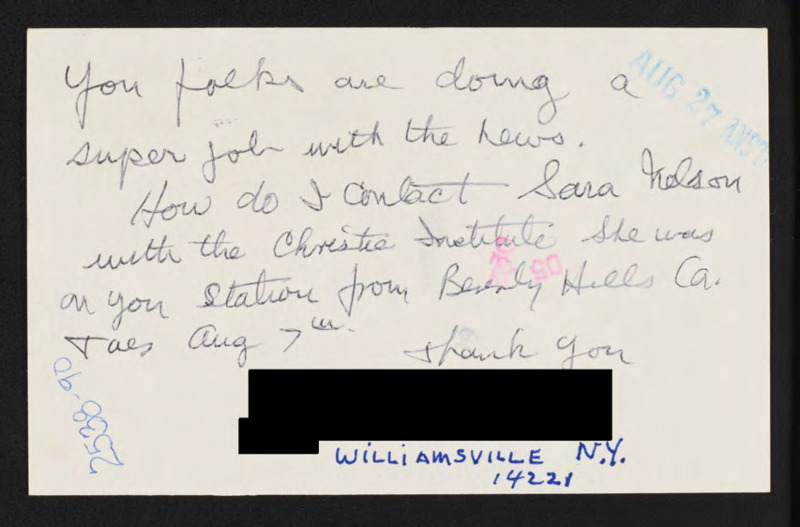 You folks are doing a
AUG 27 ANS'D
super job with the news.
How do I contact Sara Nelson
with the Christic Institute She was
on you station from Beverly Hills Ca.
Tues Aug 7th.
Thank you
2538-90
WILLIAMSVILLE N.Y.
14221